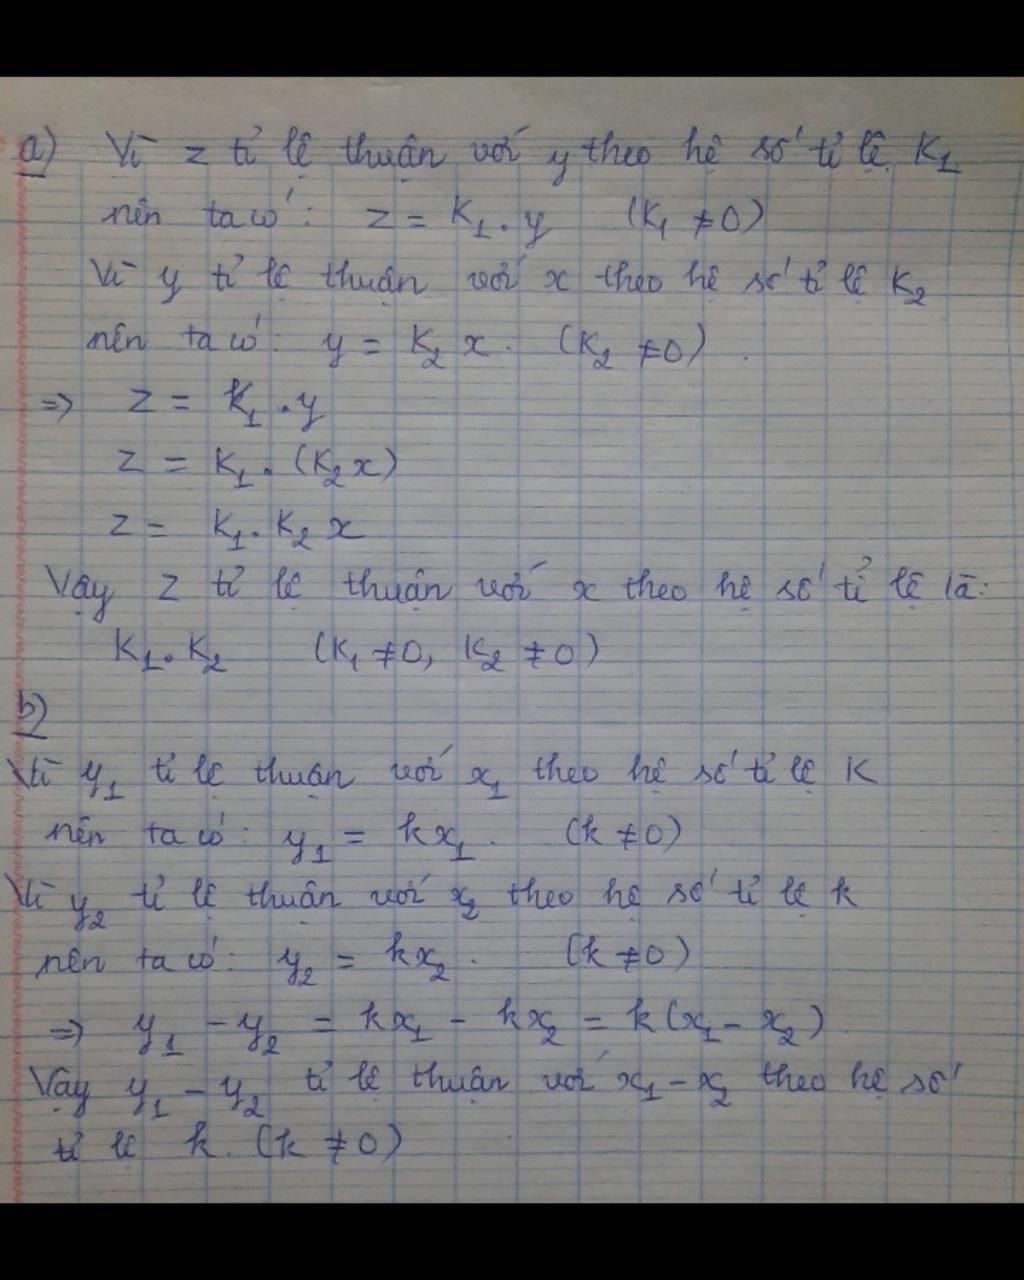 a) Vì z tỉ lệ thuận với y theo hệ số tỉ lệ K₁
nên ta có: z = K₁.y (K₁ ≠ 0)
Vì y tỉ lệ thuận với x theo hệ số tỉ lệ K₂
nên ta có: y = K₂ x. (K₂ ≠ 0).
=> z = K₁.y
z = K₁.(K₂x)
z = K₁.K₂ x
Vậy z tỉ lệ thuận với x theo hệ số tỉ lệ là:
K₁.K₂ (K₁ ≠ 0, K₂ ≠ 0)
b)
Vì y₁ tỉ lệ thuận với x₁ theo hệ số tỉ lệ K
nên ta có: y₁ = kx₁. (k ≠ 0)
Vì y₂ tỉ lệ thuận với x₂ theo hệ số tỉ lệ k
nên ta có: y₂ = kx₂. (k ≠ 0)
=> y₁ - y₂ = kx₁ - kx₂ = k(x₁ - x₂)
Vậy y₁ - y₂ tỉ lệ thuận với x₁ - x₂ theo hệ số
tỉ lệ k. (k ≠ 0)